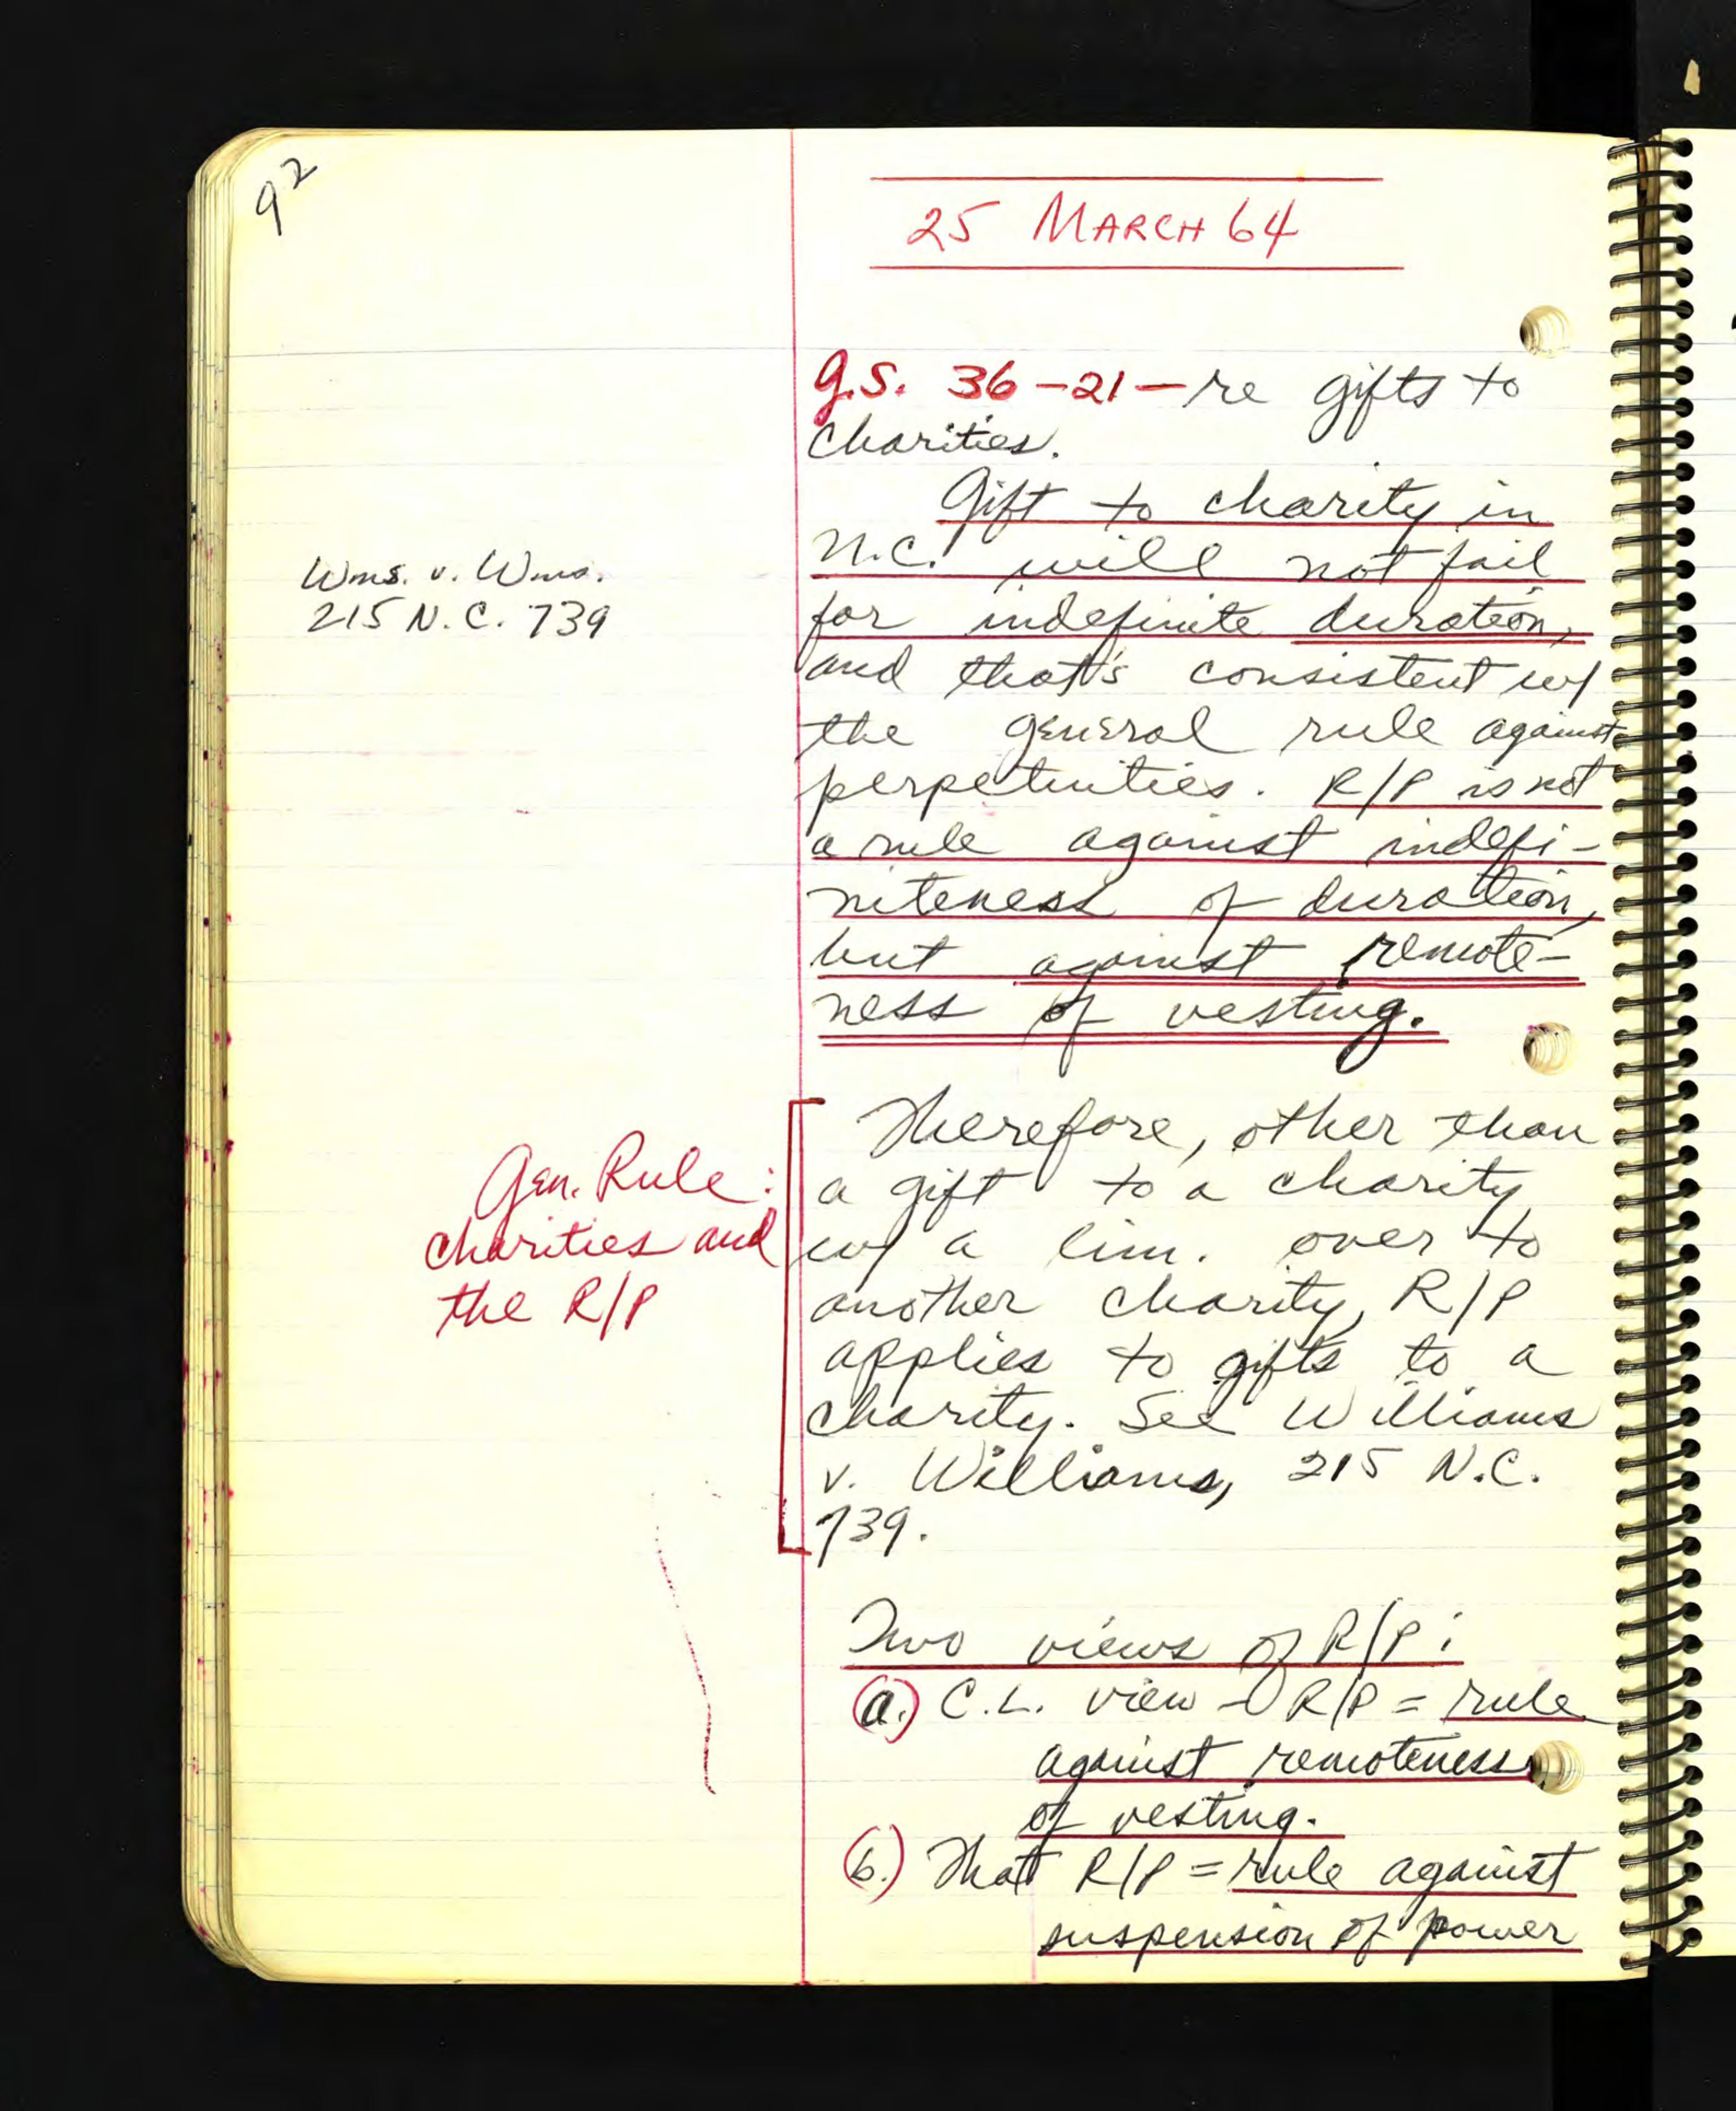 92
25 MARCH 64
G.S. 36-21- re gifts to
charities.
Gift to charity in
N.C. will not fail
for indefinite duration,
and that's consistent w/
the general rule against
perpetuities. R/P is not
a rule against indefi-
niteness of duration,
but against remote-
ness of vesting.
Wms. v. Wms.
215 N.C. 739
Therefore, other than
a gift to a charity
w/ a lim. over to
another charity, R/P
applies to gifts to a
charity. See Williams
v. Williams, 215 N.C.
739.
Gen. Rule:
charities and
the R/P
Two views of R/P:
(a.) C.L. view - R/P = rule
against remoteness
of vesting.
(b.) That R/P = rule against
suspension of power